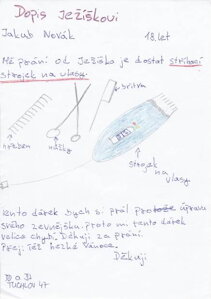 Dopis Ježíškovi
Jakub Novák 18.let
Mé přání od Ježíška je dostat stříhací
strojek na vlasy.
břitva
hřeben
nůžky
strojek
na
vlasy
tento dárek bych si přál protože úpravu
svého zevnějšku. proto mi tento dárek
velice chybí. Děkuji za přání.
Přeji též hezké Vánoce.
Děkuji
TUCHLOV 47